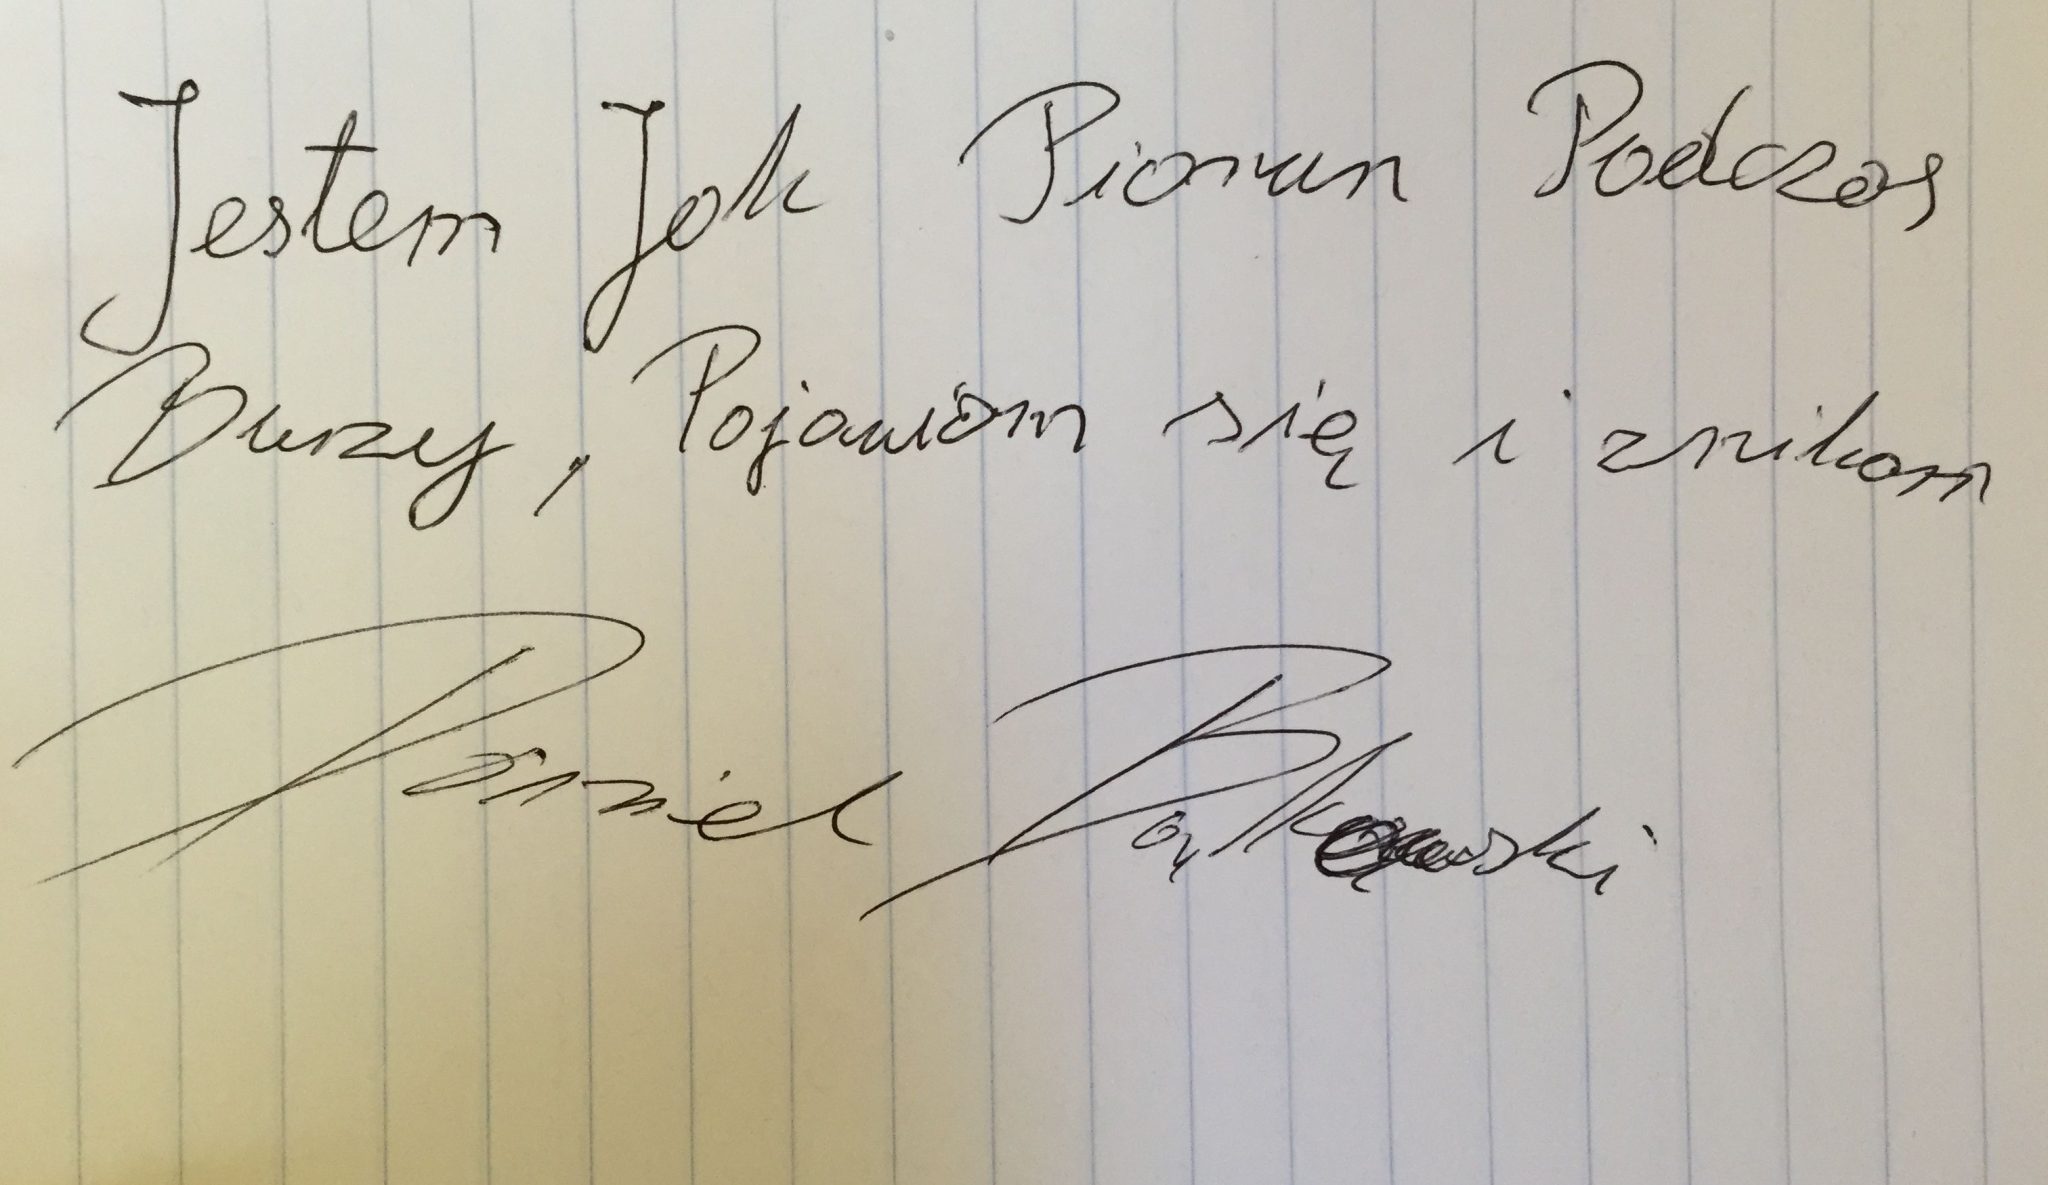 Jestem Jak Piorun Podczas
Burzy, Pojawiam się i znikam
Daniel Bątkowski